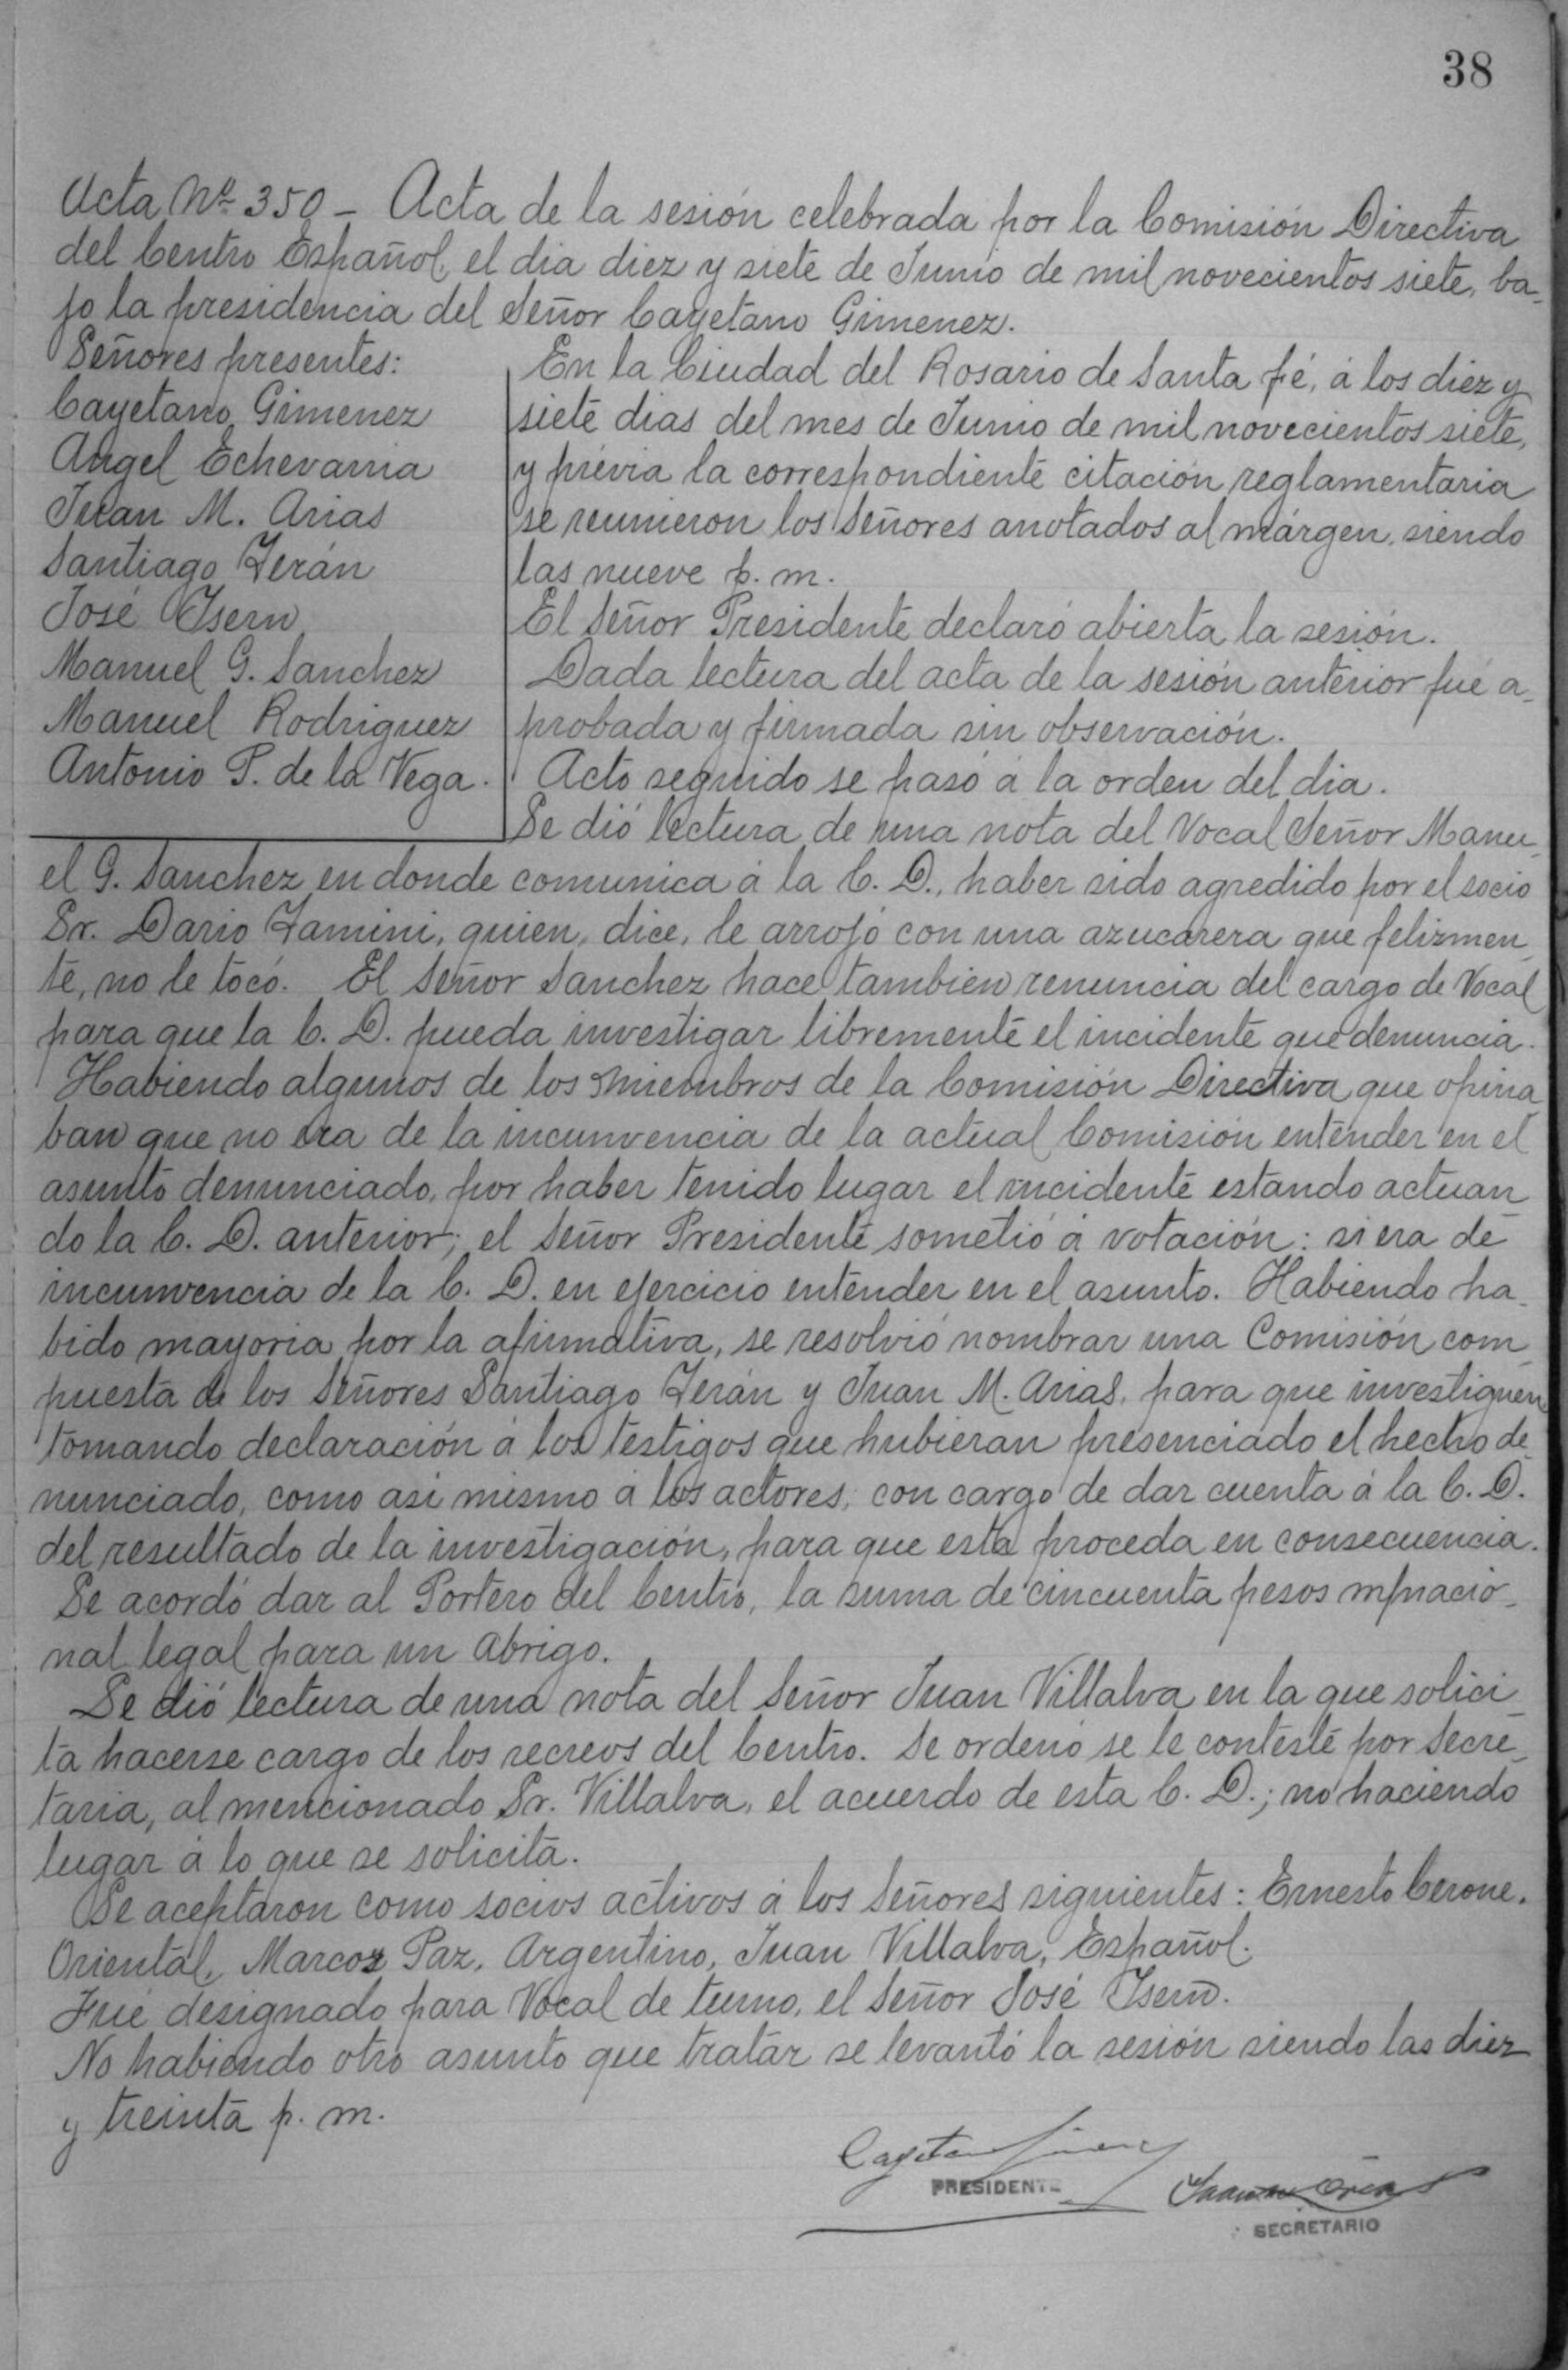 38
Acta Nº 350 - Acta de la sesión celebrada por la Comisión Directiva
del Centro Español, el dia diez y siete de Junio de mil novecientos siete, ba-
jo la presidencia del Señor Cayetano Gimenez.
Señores presentes:
Cayetano Gimenez
Angel Echevarria
Juan M. Arias
Santiago Terán
José Isern
Manuel G. Sanchez
Manuel Rodriguez
Antonio P. de la Vega.
En la Ciudad del Rosario de Santa fé, á los diez y
siete dias del mes de Junio de mil novecientos siete,
y prévia la correspondiente citación reglamentaria
se reunieron los Señores anotados al márgen, siendo
las nueve p. m.
El Señor Presidente declaró abierta la sesión.
Dada lectura del acta de la sesión anterior fué a-
probada y firmada sin observación.
Acto seguido se pasó á la orden del dia.
Se dió lectura de una nota del Vocal Señor Manu-
el G. Sanchez en donde comunica á la C. D., haber sido agredido por el socio
Sr. Dario Zamini, quien, dice, le arrojó con una azucarera que felizmen-
te, no le tocó. El Señor Sanchez hace tambien renuncia del cargo de Vocal
para que la C. D. pueda investigar libremente el incidente que denuncia.
Habiendo algunos de los miembros de la Comisión Directiva que opina-
ban que no era de la incunvencia de la actual Comisión entender en el
asunto denunciado, por haber tenido lugar el incidente estando actuan-
do la C. D. anterior; el Señor Presidente sometió á votación: si era de
incunvencia de la C. D. en ejercicio entender en el asunto. Habiendo ha-
bido mayoria por la afirmativa, se resolvió nombrar una Comisión com-
puesta de los Señores Santiago Terán y Juan M. Arias, para que investiguen
tomando declaración á los testigos que hubieran presenciado el hecho de-
nunciado, como asi mismo á los actores, con cargo de dar cuenta á la C. D.
del resultado de la investigación, para que esta proceda en consecuencia.
Se acordó dar al Portero del Centro, la suma de cincuenta pesos m/nacio-
nal legal para un abrigo.
Se dió lectura de una nota del Señor Juan Villalva en la que solici-
ta hacerse cargo de los recreos del Centro. Se ordenó se le conteste por Secre-
taria, al mencionado Sr. Villalva, el acuerdo de esta C. D.; no haciendo
lugar á lo que se solicita.
Se aceptaron como socios activos á los Señores siguientes: Ernesto Cerone,
Oriental, Marcos Paz, Argentino, Juan Villalva, Español.
Fué designado para Vocal de turno, el Señor José Isern.
No habiendo otro asunto que tratar se levantó la sesión siendo las diez
y treinta p. m.
Cayetano Gimenez
PRESIDENTE
Juan M. Arias
SECRETARIO